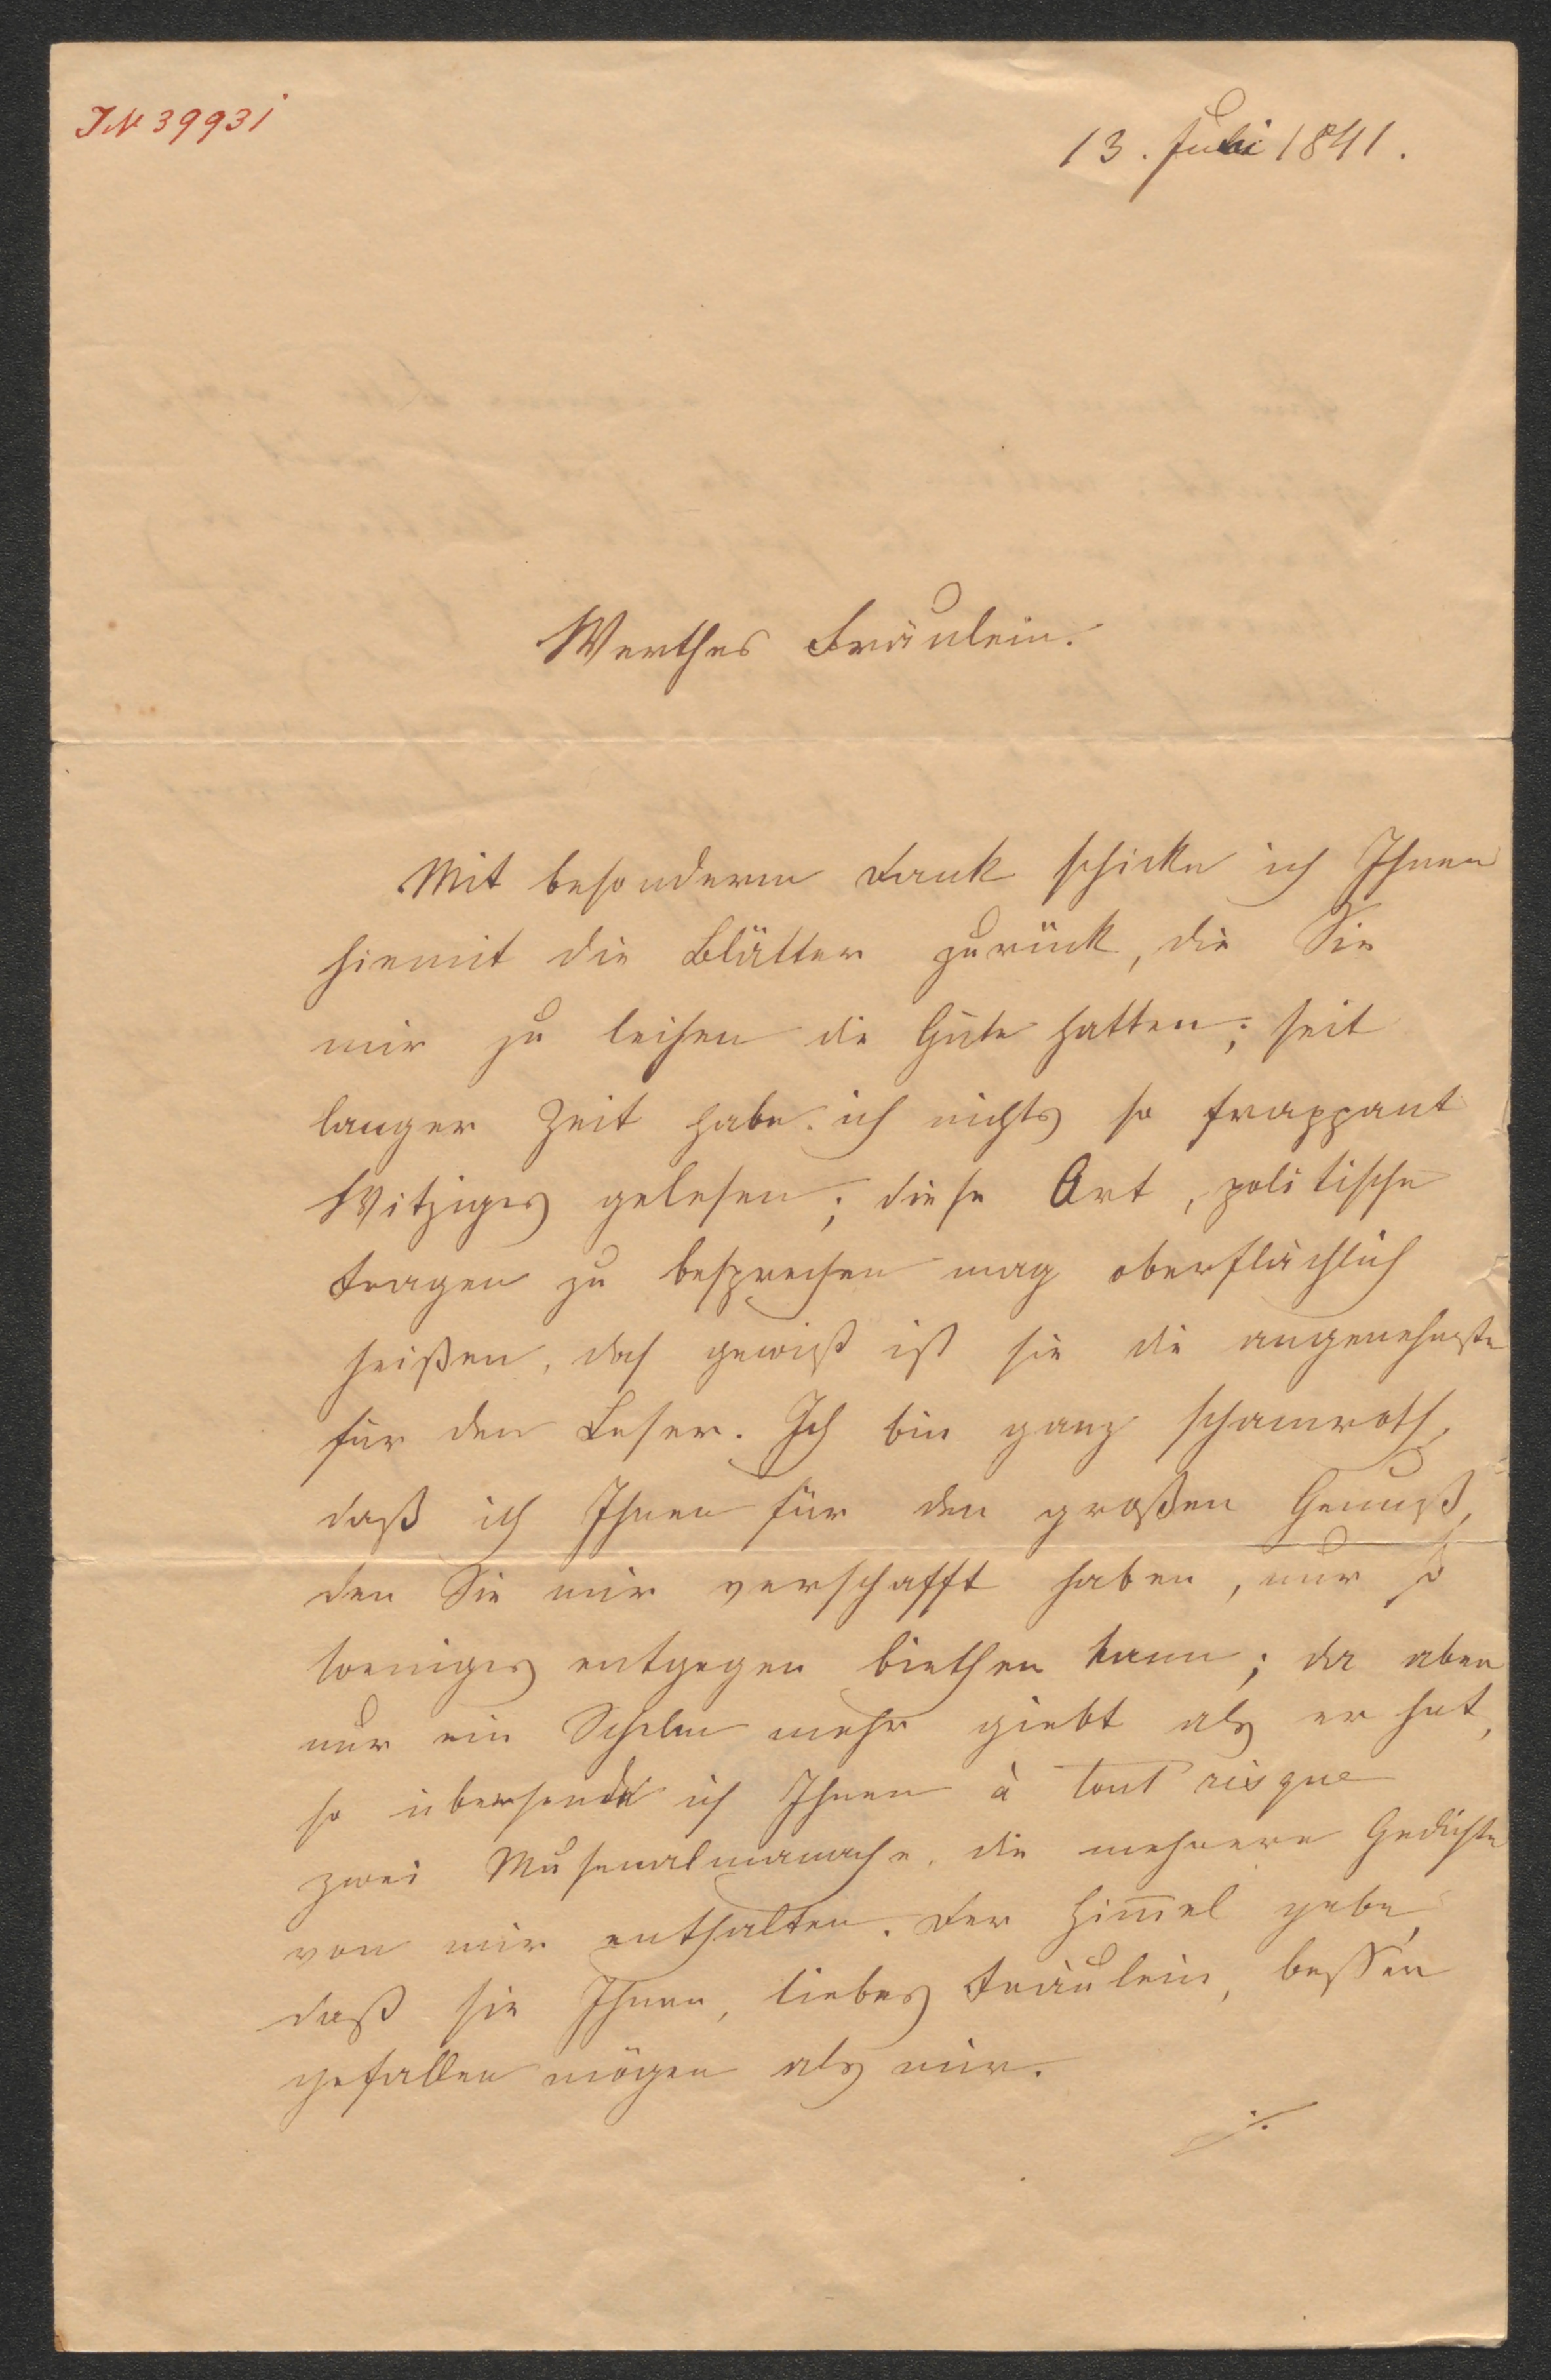 IN 39931
13. Juli 1841.
Werthes Fräulein.
Mit besonderem Dank schicke ich Ihnen
hiemit die Blätter zurück, die Sie
mir zu leihen die Güte hatten; seit
langer Zeit habe ich nichts so frappant
Witziges gelesen; diese Art, politische
Fragen zu besprechen mag oberflächlich
heißen, doch gewiß ist sie die angenehmste
für den Leser. Ich bin ganz schamroth,
daß ich Ihnen für den großen Genuß,
den Sie mir verschafft haben, nur so
weniges entgegen biethen kann; da aber
nur ein Schelm mehr giebt als er hat,
so übersende ich Ihnen à tout risque
zwei Musenalmanache, die mehrere Gedichte
von mir enthalten. Der Him̅el gebe,
daß sie Ihnen, liebes Fräulein, besser
gefallen mögen als mir.
./.